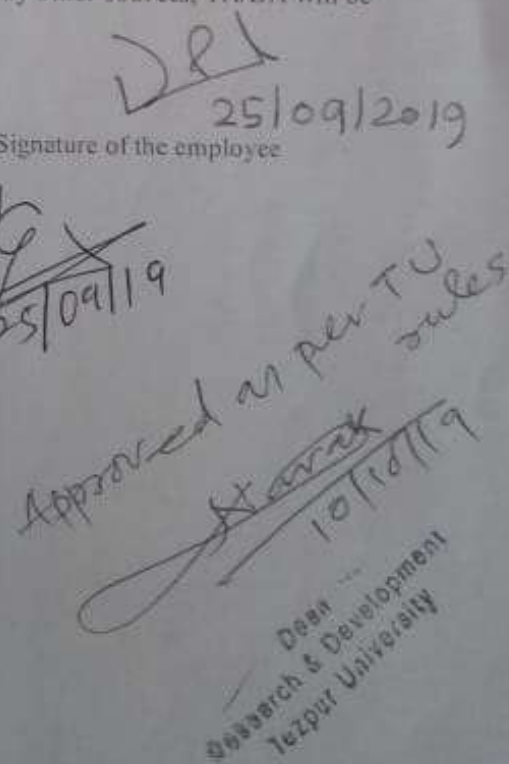 other sources, will be
25/09/2019
Signature of the employee
25/09/19
Approved as per TU
rules
10/10/19
Dean
Research & Development
Tezpur University